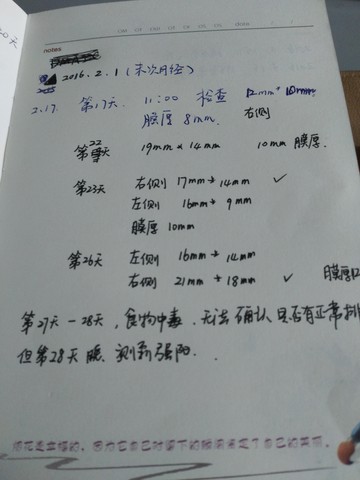 30天
notes
2016.2.1(末次月经)
2.17. 第17天. 11:00 检查 12mm * 10mm.
膜厚 8mm. 右侧
第22天 19mm * 14mm 10mm 膜厚.
第23天 右侧 17mm * 14mm ✓
左侧 16mm * 9mm
膜厚 10mm
第26天 左侧 16mm * 14mm
右侧 21mm * 18mm ✓ 膜厚12
第27天-28天, 食物中毒. 无法确认是否有正常排
但第28天晚. 测新强阳.